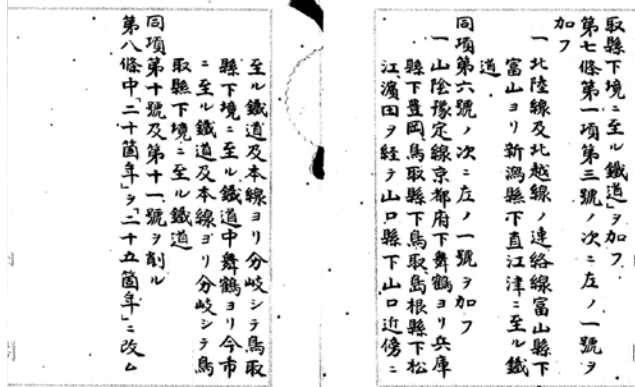 取縣下境ニ至ル鐵道」ヲ加フ
第七條第一項第三號ノ次ニ左ノ一號ヲ
加フ
一北陸線及北越線ノ連絡線富山縣下
富山ヨリ新潟縣下直江津ニ至ル鐵
道
同項第六號ノ次ニ左ノ一號ヲ加フ
一山陰豫定線京都府下舞鶴ヨリ兵庫
縣下豊岡鳥取縣下鳥取島根縣下松
江濱田ヲ経テ山口縣下山口近傍ニ
至ル鐵道及本線ヨリ分岐シテ鳥取
縣下境ニ至ル鐵道中舞鶴ヨリ今市
ニ至ル鐵道及本線ヨリ分岐シテ鳥
取縣下境ニ至ル鐵道
同項第十號及第十一號ヲ削ル
第八條中「二十箇年」ヲ「二十五箇年」ニ改ム